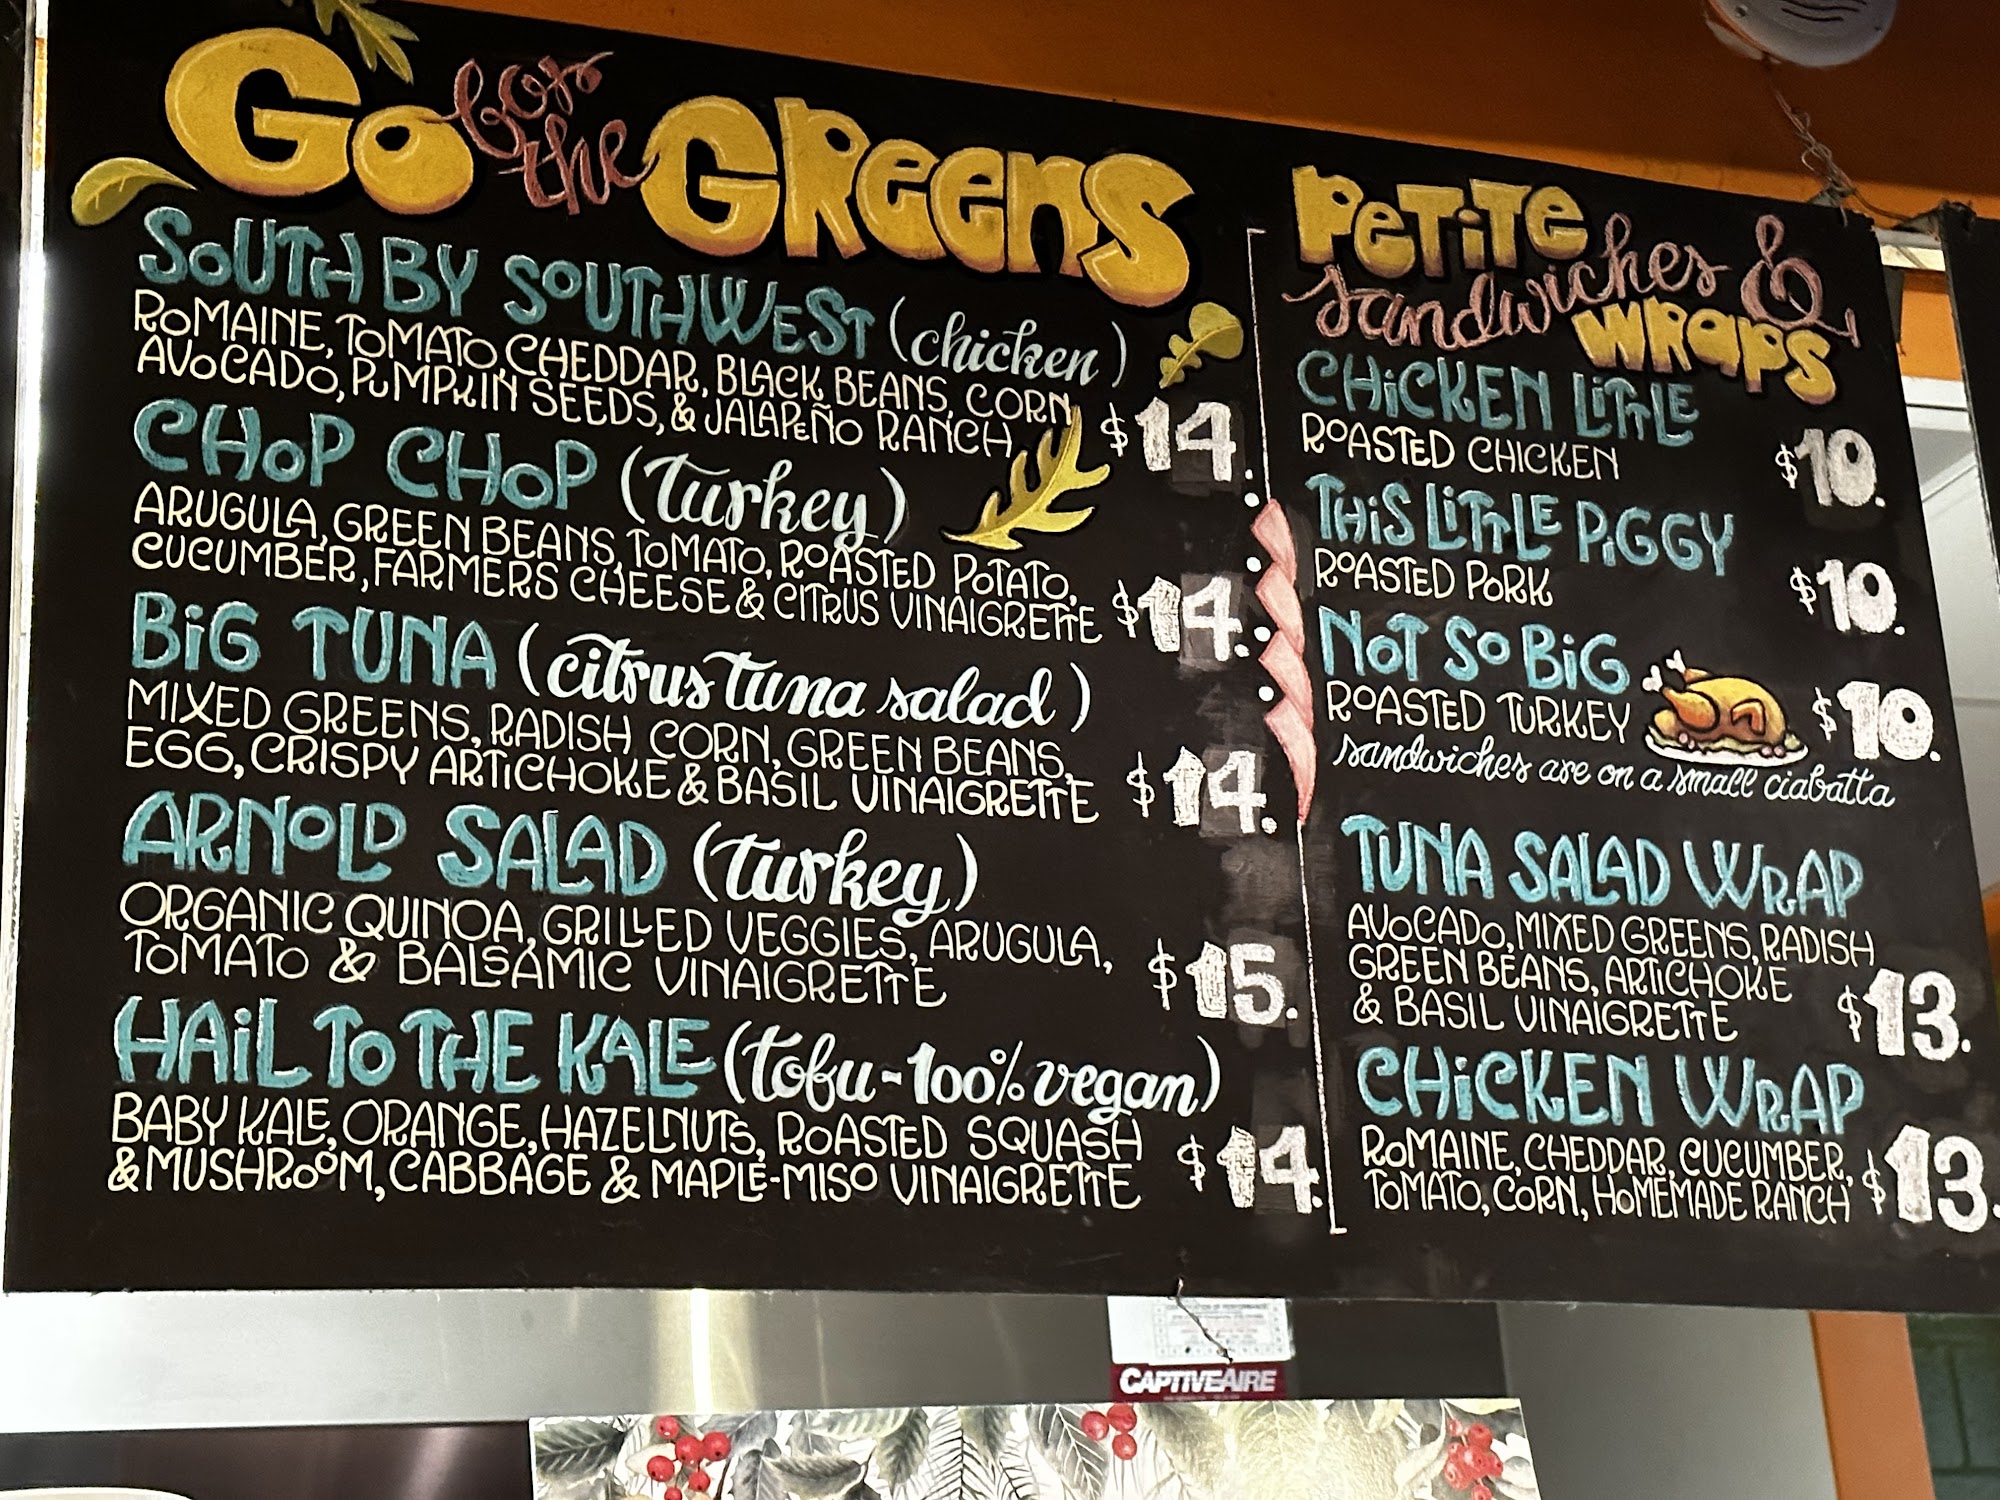 Go for the GReens
SOUTH BY SOUTHWEST (chicken)
ROMAINE, TOMATO, CHEDDAR, BLACK BEANS, CORN,
AVOCADO, PUMPKIN SEEDS, & JALAPEÑO RANCH $14.
CHOP CHOP (turkey)
ARUGULA, GREEN BEANS, TOMATO, ROASTED POTATO,
CUCUMBER, FARMERS CHEESE & CITRUS VINAIGRETTE $14.
BiG TUNA (citrus tuna salad)
MIXED GREENS, RADISH, CORN, GREEN BEANS,
EGG, CRISPY ARTICHOKE & BASIL VINAIGRETTE $14.
ARNOLD SALAD (turkey)
ORGANIC QUINOA, GRILLED VEGGIES, ARUGULA,
TOMATO & BALSAMIC VINAIGRETTE $15.
HAiL TO THE KALE (tofu-100% vegan)
BABY KALE, ORANGE, HAZELNUTS, ROASTED SQUASH
& MUSHROOM, CABBAGE & MAPLE-MISO VINAIGRETTE $14.
PeTiTe
sandwiches &
WRaPS
CHiCKEN LiTTLE
ROASTED CHICKEN $10.
THiS LiTTLE PiGGY
ROASTED PORK $10.
NOT SO BiG
ROASTED TURKEY $10.
sandwiches are on a small ciabatta
TUNA SALAD WRAP
AVOCADO, MIXED GREENS, RADISH
GREEN BEANS, ARTICHOKE
& BASIL VINAIGRETTE $13.
CHiCKEN WRAP
ROMAINE, CHEDDAR, CUCUMBER,
TOMATO, CORN, HOMEMADE RANCH $13.
CAPTIVEAIRE